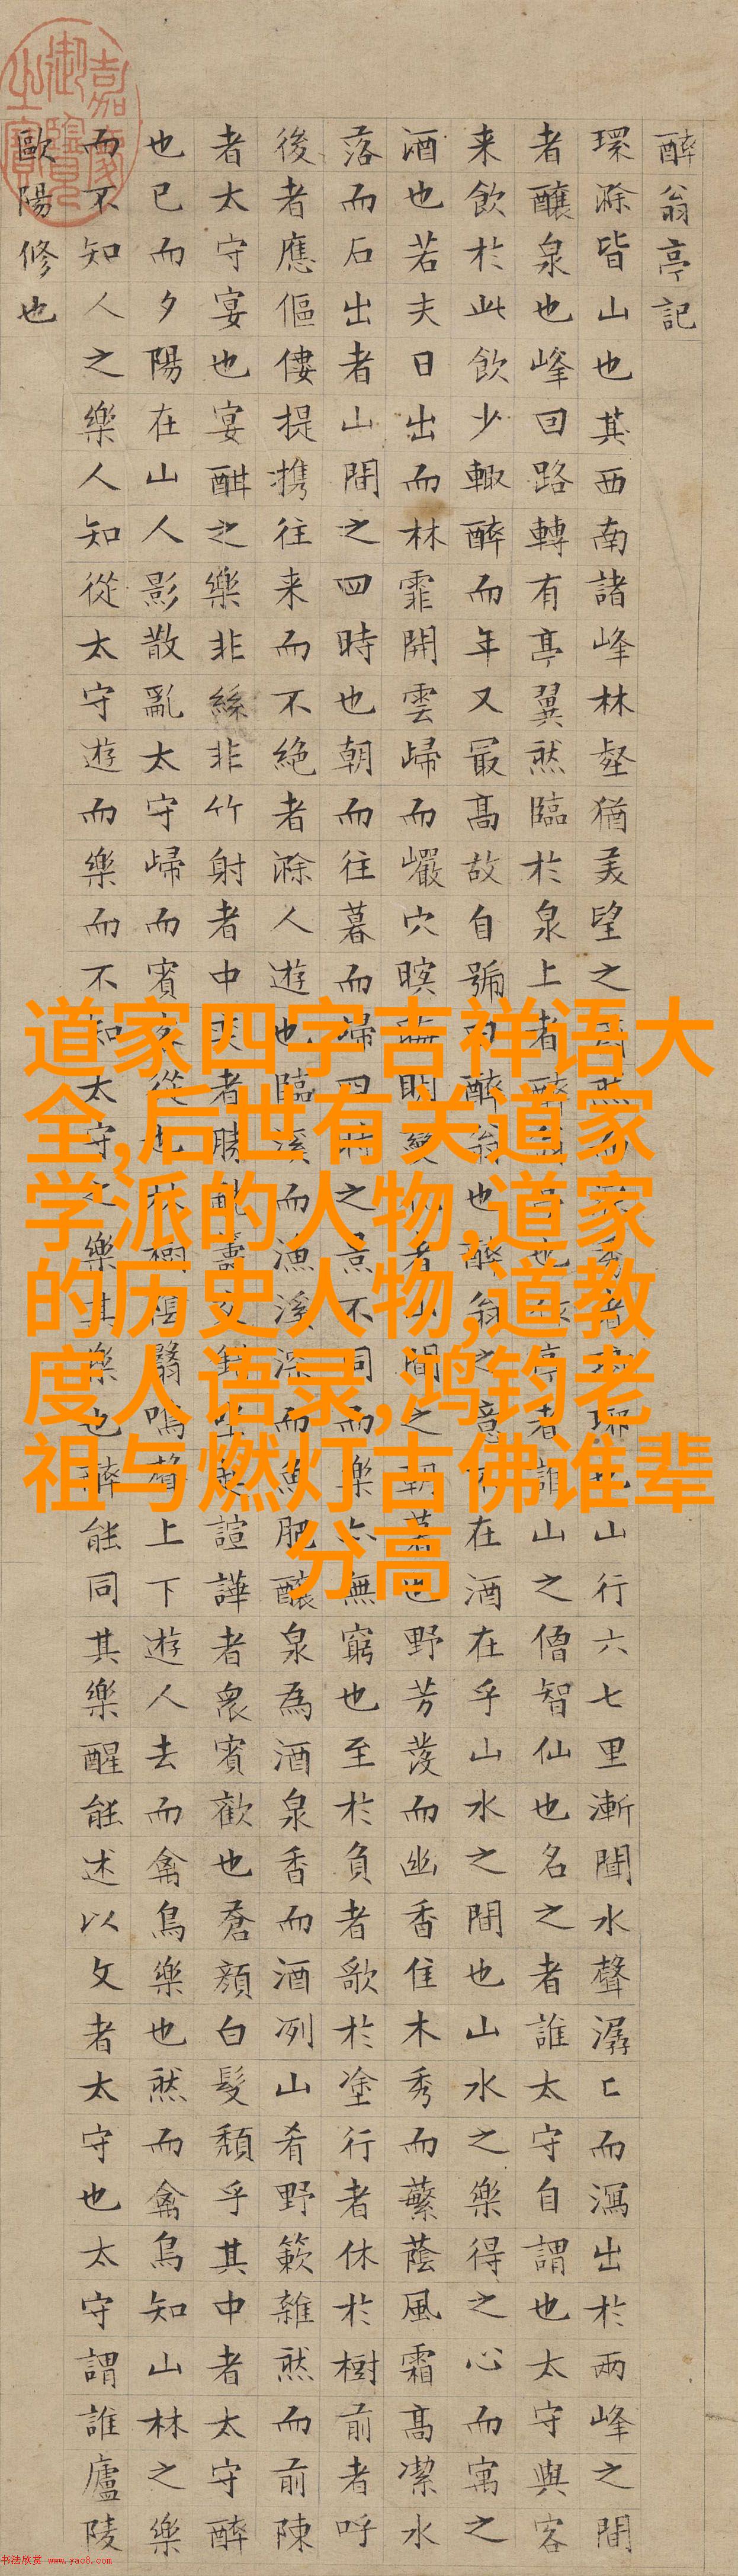 醉翁亭記
環滁皆山也其西南諸峰林壑猶美望之山行六七里漸聞水聲潺〻而瀉出於兩峰之間
者釀泉也峰回路轉有亭翼然臨於泉上者醉亭者誰山之僧智仙也名之者誰太守自謂也太守與客
来飲於此飲少輙醉而年又最高故自號曰醉翁也醉翁之意在酒在乎山水之間也山水之樂得之心而寓之
酒也若夫日出而林霏開雲歸而巖穴暝晦明變者間之朝暮也野芳發而幽香佳木秀而蘩蔭風霜高潔水
落而石出者山間之四時也朝而往暮而歸四時之景不同而樂亦無窮也至於負者歌於塗行者休於樹前者呼
後者應傴僂提攜往来而不絶者滁人遊也臨溪而漁溪深而魚肥釀泉為酒泉香而酒冽山肴野簌雜然而前陳
者太守宴也宴酣之樂非絲非竹射者中奕者勝觥籌交坐起諠譁者衆賓歡也蒼顏白髮頹乎其中者太守醉
也已而夕陽在山人影散亂太守歸而賓客從也林樹陰翳鳴聲上下遊人去而禽鳥樂也然而禽鳥知山林之樂
而不知人之樂人知從太守遊而樂而不知太守之樂其樂也醉能同其樂醒能述以文者太守也太守謂誰廬陵
歐陽修也
嘉慶御覽之寶
道家四字吉祥语大
全,后世有关道家
学派的人物,道家
的历史人物,道教
度人语录,鸿钧老
祖与燃灯古佛谁辈
分高
书法欣赏 www.yac8.com